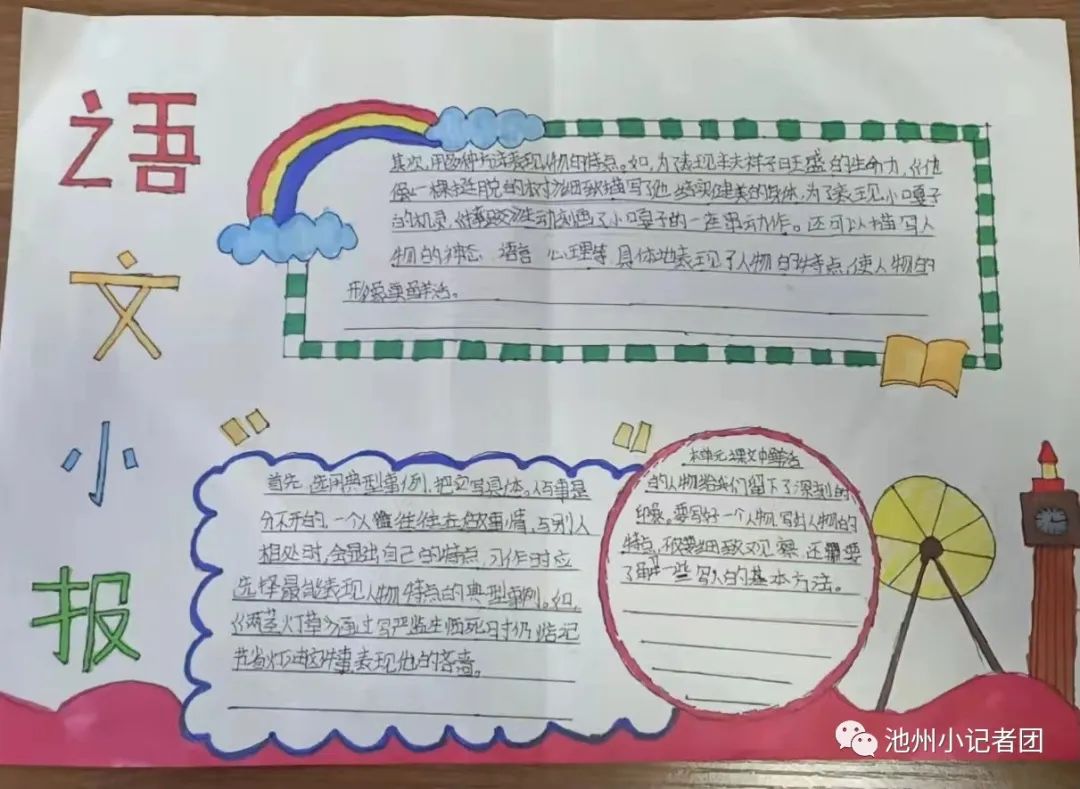 语
文
小
报
其次,用多种方法表现人物的特点。如,为了表现车夫祥子旺盛的生命力,《他
像一棵挺脱的树》细致描写了他结实健美的身体,为了表现小嘎子
的机灵,《摔跤》生动刻画了小嘎子的一连串动作。还可以描写人
物的神态、语言、心理等,具体地表现了人物的特点,使人物的
形象更鲜活。
首先,选用典型事例,把文写具体。人与事是
分不开的,一个人往往在做事情,与别人
相处时,会显出自己的特点,习作时应
选择最能表现人物特点的典型事例。如,
《两茎灯草》通过写严监生临死时仍惦记
节省灯油这件事,表现他的吝啬。
本单元课文中鲜活
的人物给我们留下了深刻的
印象。要写好一个人物,写出人物的
特点,不仅要细致观察,还需要
了解一些写人的基本方法。
池州小记者团